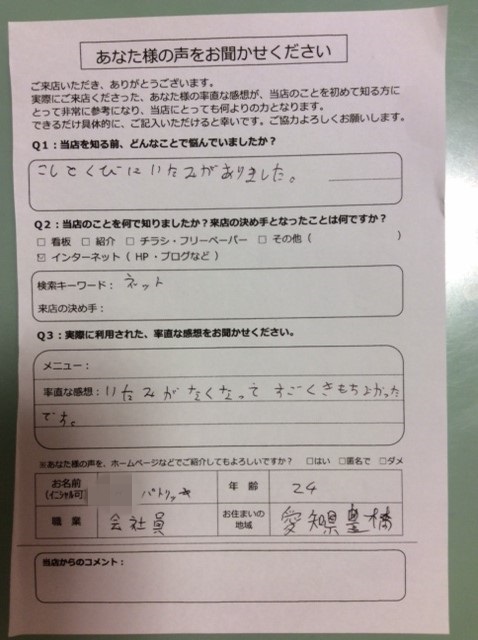 あなた様の声をお聞かせください
ご来店いただき、ありがとうございます。
実際にご来店くださった、あなた様の率直な感想が、当店のことを初めて知る方に
とって非常に参考になり、当店にとっても何よりの力となります。
できるだけ具体的に、ご記入いただけると幸いです。ご協力よろしくお願いします。
Q1：当店を知る前、どんなことで悩んでいましたか？
こしとくびにいたみがありました。
Q2：当店のことを何で知りましたか？来店の決め手となったことは何ですか？
□ 看板 □ 紹介 □ チラシ・フリーペーパー □ その他（ ）
☑ インターネット（ HP ・ブログなど ）
検索キーワード： ネット
来店の決め手：
Q3：実際に利用された、率直な感想をお聞かせください。
メニュー：
率直な感想：いたみがなくなって すごくきもちよかった
です。
※あなた様の声を、ホームページなどでご紹介してもよろしいですか？ □はい □匿名で □ダメ
お名前 年 齢 24
（イニシャル可）
職 業 会社員 お住まいの 愛知県豊橋
地域
当店からのコメント：